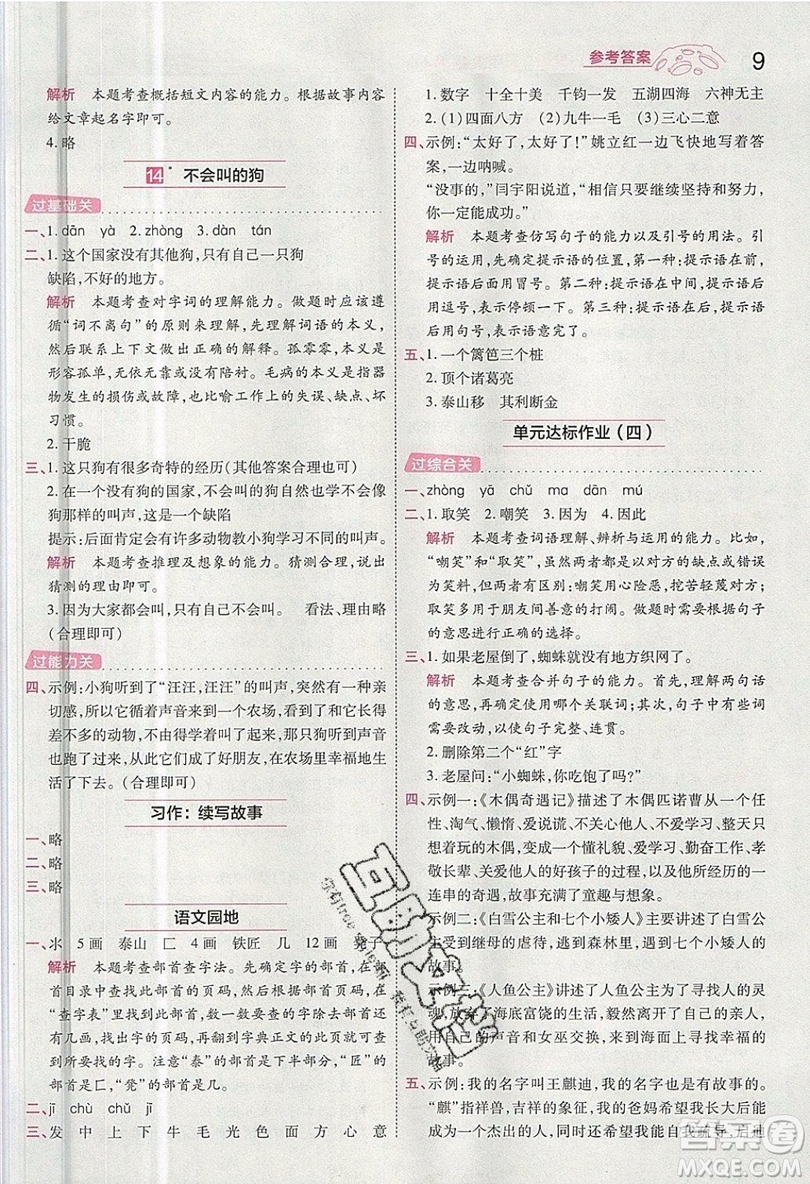 参考答案
9
解析 本题考查概括短文内容的能力。根据故事内容
给文章起名字即可。
4. 略
14* 不会叫的狗
过基础关
一、1. dān yà 2. zhòng 3. dàn tán
二、1. 这个国家没有其他狗,只有自己一只狗
缺陷,不好的地方。
解析 本题考查对字词的理解能力。做题时应该遵
循“词不离句”的原则来理解,先理解词语的本义,
然后联系上下文做出正确的解释。孤零零,本义是
形容孤单,无依无靠或没有陪衬。毛病的本义指器
物发生的损伤或故障,也比喻工作上的失误、缺点、
坏习惯。
2. 干脆
三、1. 这只狗有很多奇特的经历(其他答案合理也可)
2. 因为在没有狗的国家,小狗自然是听不到同类的
叫声的,所以没有叫声,这是一个缺陷
提示:后面肯定会有许多动物教小狗学习不同的叫声。
解析 本题考查推理及想象的能力。猜测合理,
猜测的理由即可。
3. 因为大家都不会叫,只有我会叫 看法、理由略
(合理即可)
过能力关
四、示例:小狗听到了“汪汪,汪汪”的叫声,突然有一种亲
切感,然后循着声音来到一个农场,看到了和它长得
差不多的动物,并跟着学习并学会了叫声。小狗高兴
极了,它们成了好朋友,在农场里幸福地生
活了下去。(合理即可)
习作:续写故事
一、略
二、略
三、略
语文园地
一、氺 5 画 泰山 匚 4 画 铁匠 几 12 画 凳子
解析 本题考查部首查字法。先确定字的部首,在部
首目录中查找此部首的页码,根据部首的页码,在
“查字表”里找到此部首,数一数要查的字除部首外还
有几画,找出现字典正文的页码,再翻到那一页即
可。注意:查“泰”的部首是下半部分,“匠”的部
首是匚,“凳”的部首是下半部分几。
二、jī chù chǔ jǐ
三、发 中 上 下 牛 毛 光 色 面 方 心 意
1. 数字 十全十美 千钧一发 五湖四海 六神无主
2. (1)四面八方 (2)九牛一毛 (3)三心二意
四、示例:“太好了,太好了!”姚立红一边飞快地写着答
案,一边兴奋地喊着。
“没事的,”闫宇阳说,“相信只要继续坚持与努力,
你一定可以成功的。”
解析 本题考查仿写句子的能力以及引号的用法。引
用时,先确定提示语的位置,第一种:提示语在前,
提示语后面用冒号。第二种:提示语在中间,提示语后
用逗号,表示话还没有说完。第三种:提示语在后,提示语
后用句号,表示话已经说完。
五、1. 一个篱笆三个桩
2. 顶个诸葛亮
3. 泰山移 其利断金
单元达标作业(四)
过综合关
一、zhòng yā chǔ ma dān mú
二、1. 取笑 2. 嘲笑 3. 因为 4. 因此
解析 本题考查词语理解、辨析与运用的能力。比如,
“嘲笑”和“取笑”,虽然两者都是以对方的缺点或错误
为笑料,但两者有区别:嘲笑用心险恶,打击对方;
取笑多用于朋友间善意的打闹。做题时要根据句子
的意思进行正确选择。
三、1. 如果老屋倒了,蜘蛛就没有地方织网了。
解析 本题考查合并句子的能力。首先,要读懂句子
的意思,再选用合适的关联词;其次,对个别词语
需要改动,以便句子完整、流畅。
2. 删除第二个“红”字
3. 老屋问:“小蜘蛛,你吃饱了吗?”
四、示例一:《木偶奇遇记》描述了木偶匹诺曹从一个任
性、淘气、懒惰、爱说谎、不爱学习、不关心他人、不爱
劳动的木偶,变成一个懂礼貌、爱学习、勤奋工作、孝
敬长辈、关爱他人的好孩子的过程,以及他所经历的一
连串的奇遇,故事充满了童趣与想象。
示例二:《白雪公主和七个小矮人》主要讲述了白雪公主
受到继母的虐待,逃到森林里,遇到七个小矮人的
故事。
示例三:《人鱼公主》讲述了人鱼公主为了寻找人的灵
魂,放弃了海底富饶的生活,勇敢忍受巨大的痛苦,
用自己的声音和女巫交换,来到人间的故事。
五、示例:我的名字叫王麒迪,我的名字也是有故事的。
“麒”指祥兽,吉祥的象征,我的爸妈希望我长大后能
成为一个杰出的人,“迪”则是希望我能自我疏导、启迪
互助文档
答案圈
MXQE.COM